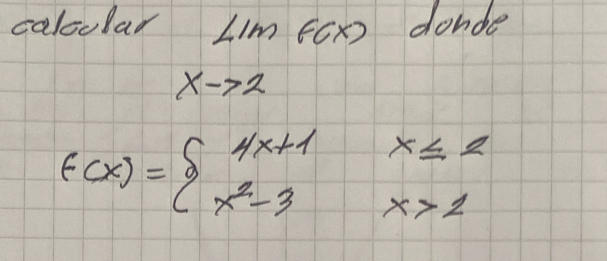 calcular Lim f(x) donde
x->2
f(x) = { 4x+1 x ≤ 2
x²-3 x > 2